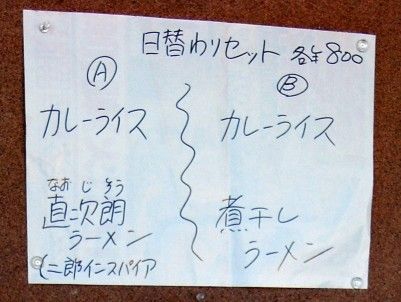 日替わりセット 各¥800
Ⓐ
カレーライス
なおじろう
直次朗
ラーメン
(二郎インスパイア
Ⓑ
カレーライス
煮干し
ラーメン